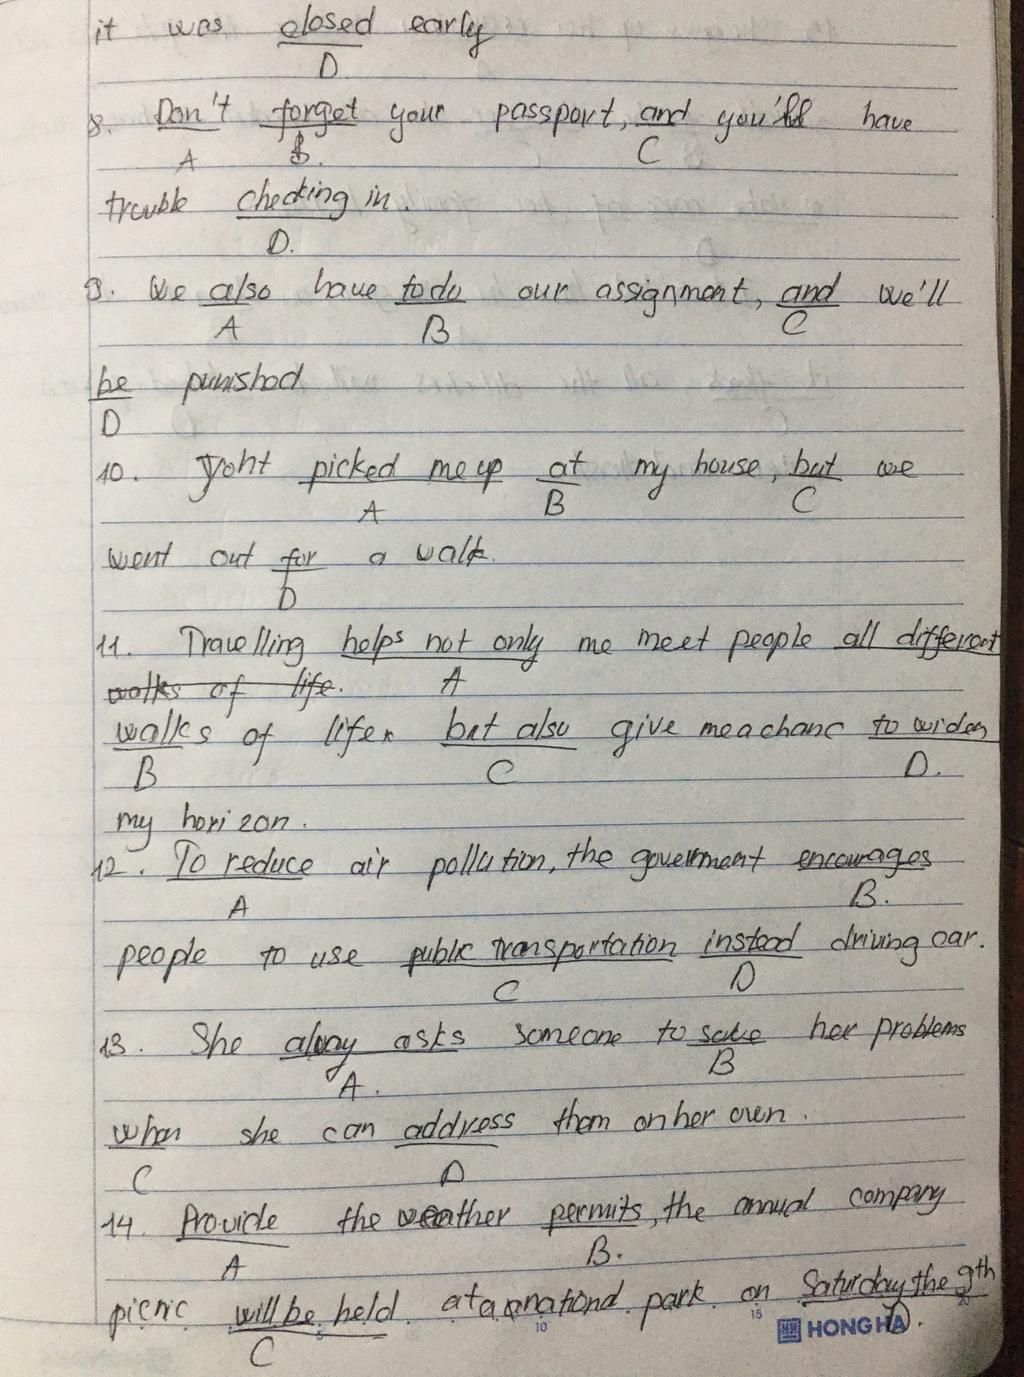 it was closed early
D.
8. Don't forget your passport, and you'll have
A B. C
trouble checking in.
D.
9. We also have to do our assignment, and we'll
A B C
be punished
D
10. picked me up at my house, but we
A B C
went out for a walk.
D
11. Travelling helps not only me meet people all different
walks of life. A
walks of life but also give me a chanc to widen
B C D.
my horizon.
12. To reduce air pollution, the government encourages
A B.
people to use public transportation instead driving car.
C D
13. She always asks someone to solve her problems
A. B
when she can address them on her own.
C D
14. Provide the weather permits, the annual company
A B.
picnic will be held at a national park on Saturday the 9th
C D.
5 10 15 20
HONG HA